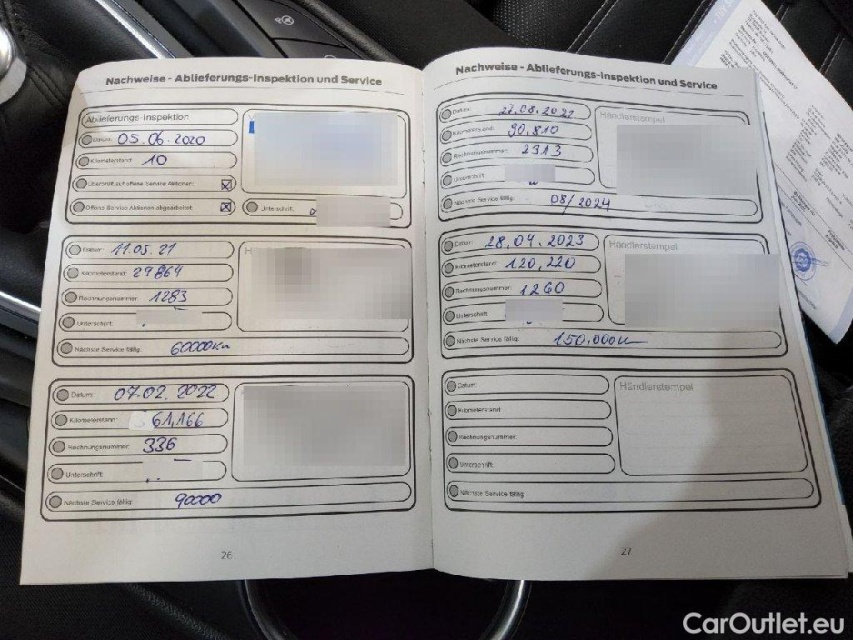 Nachweise - Ablieferungs-Inspektion und Service
Ablieferungs-Inspektion
Datum: 05.06.2020
Kilometerstand: 10
Überprüft auf offene Service Aktionen:
Offene Service Aktionen abgearbeitet:
Unterschrift:
Datum: 11.05.21
Kilometerstand: 29864
Rechnungsnummer: 1283
Unterschrift:
Nächste Service fällig: 60000Km
Datum: 07.02.2022
Kilometerstand: 61,166
Rechnungsnummer: 336
Unterschrift:
Nächste Service fällig: 90000
26
Nachweise - Ablieferungs-Inspektion und Service
Datum: 22.08.2022
Händlerstempel
Kilometerstand: 90.810
Rechnungsnummer: 2313
Unterschrift:
Nächste Service fällig: 08/2024
Datum: 28.04.2023
Händlerstempel
Kilometerstand: 120,220
Rechnungsnummer: 1260
Unterschrift:
Nächste Service fällig: 150.000
Datum:
Händlerstempel
Kilometerstand:
Rechnungsnummer:
Unterschrift:
Nächste Service fällig:
27
CarOutlet.eu